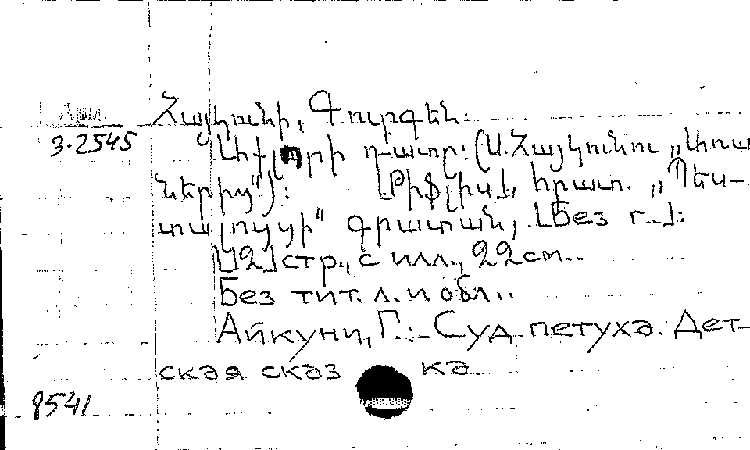 Հայկունի, Գուրգեն.
3.2545
դատը: (Ա. Հայկունու
ներից"): [Թիֆլիս], հրատ. „Պես-
տալոցցի" գրատան, [Без г.]:
[12] стр., с илл., 22 см.
Без тит. л. и обл..
Айкуни, Г.: Суд петуха. Дет-
ская сказ ка
8541